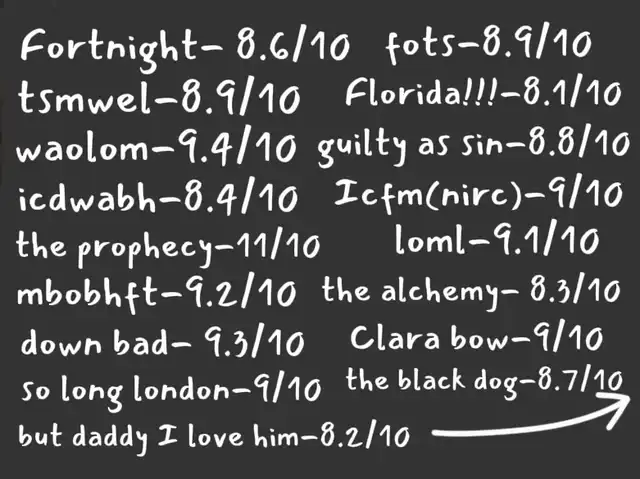 Fortnight- 8.6/10
tsmwel-8.9/10
waolom-9.4/10
icdwabh-8.4/10
the prophecy-11/10
mbobhft-9.2/10
down bad- 9.3/10
so long london-9/10
but daddy I love him-8.2/10
fots-8.9/10
Florida!!!-8.1/10
guilty as sin-8.8/10
Icfm(nirc)-9/10
loml-9.1/10
the alchemy- 8.3/10
Clara bow-9/10
the black dog-8.7/10